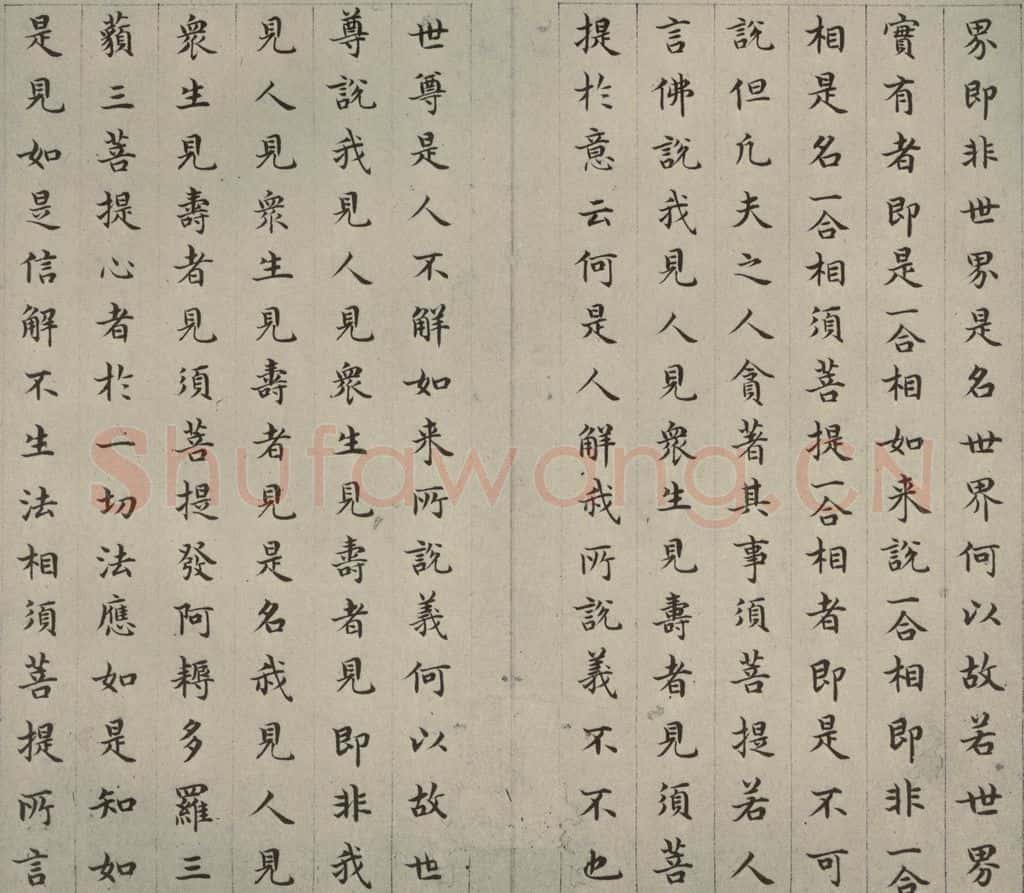 界即非世界是名世界何以故若世界
實有者即是一合相如来說一合相即非一合
相是名一合相須菩提一合相者即是不可
說但凡夫之人貪著其事須菩提若人
言佛說我見人見衆生見壽者見須菩
提於意云何是人解我所說義不不也
世尊是人不解如来所說義何以故世
尊說我見人見衆生見壽者見即非我
見人見衆生見壽者見是名我見人見
衆生見壽者見須菩提發阿耨多羅三
藐三菩提心者於一切法應如是知如
是見如是信解不生法相須菩提所言
Shufawang.CN